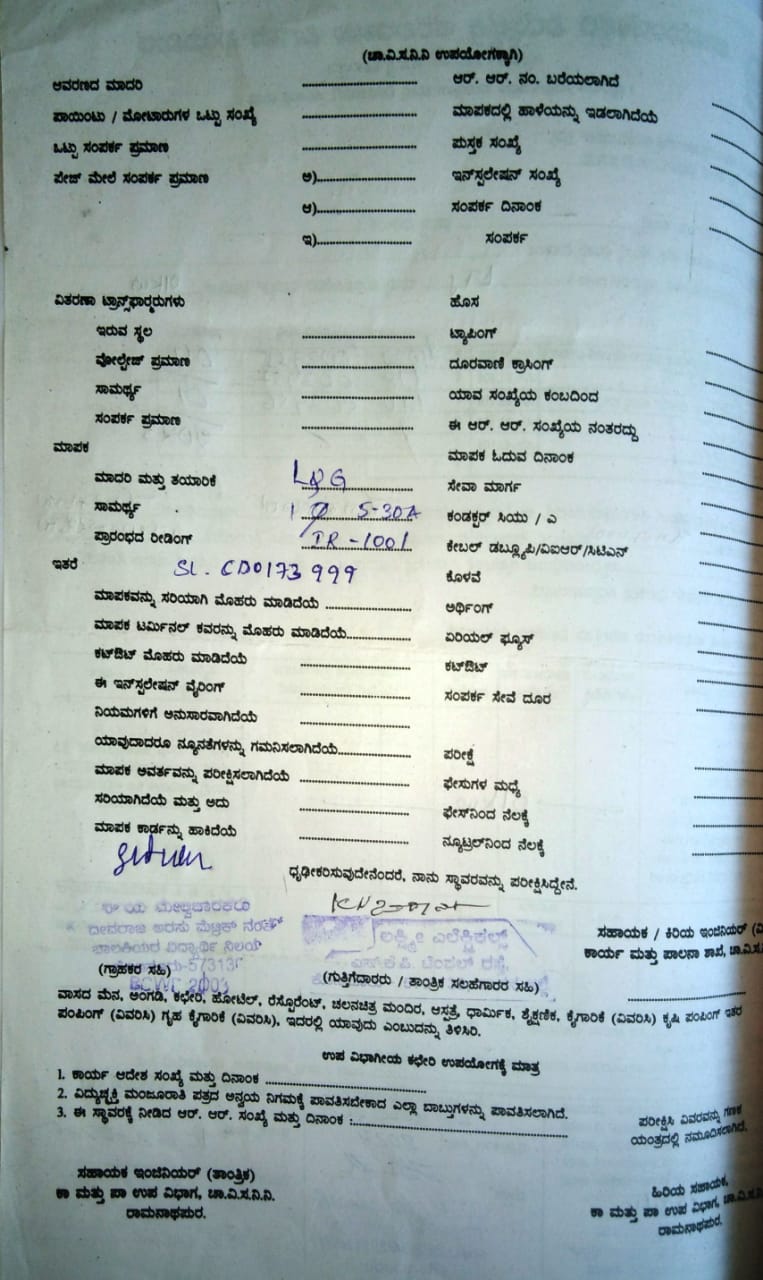 (ಚಾ.ವಿ.ಸ.ನಿ.ನಿ ಉಪಯೋಗಕ್ಕಾಗಿ)
ಆವರಣದ ಮಾದರಿ ........................ ಆರ್. ಆರ್. ನಂ. ಬರೆಯಲಾಗಿದೆ
ಪಾಯಿಂಟು / ಮೋಟಾರುಗಳ ಒಟ್ಟು ಸಂಖ್ಯೆ ........................ ಮಾಪಕದಲ್ಲಿ ಹಾಳೆಯನ್ನು ಇಡಲಾಗಿದೆಯೆ
ಒಟ್ಟು ಸಂಪರ್ಕ ಪ್ರಮಾಣ ........................ ಪುಸ್ತಕ ಸಂಖ್ಯೆ
ಪೇಜ್ ಮೇಲೆ ಸಂಪರ್ಕ ಪ್ರಮಾಣ ಅ)........................ ಇನ್‌ಸ್ಟಲೇಷನ್ ಸಂಖ್ಯೆ
ಆ)........................ ಸಂಪರ್ಕ ದಿನಾಂಕ
ಇ)........................ ಸಂಪರ್ಕ
ವಿತರಣಾ ಟ್ರಾನ್ಸ್‌ಫಾರ್ಮರುಗಳು ಹೊಸ
ಇರುವ ಸ್ಥಲ ........................ ಟ್ಯಾಪಿಂಗ್
ವೋಲ್ಟೇಜ್ ಪ್ರಮಾಣ ........................ ದೂರವಾಣಿ ಕ್ರಾಸಿಂಗ್
ಸಾಮರ್ಥ್ಯ ........................ ಯಾವ ಸಂಖ್ಯೆಯ ಕಂಬದಿಂದ
ಸಂಪರ್ಕ ಪ್ರಮಾಣ ........................ ಈ ಆರ್. ಆರ್. ಸಂಖ್ಯೆಯ ನಂತರದ್ದು
ಮಾಪಕ ಮಾಪಕ ಓದುವ ದಿನಾಂಕ
ಮಾದರಿ ಮತ್ತು ತಯಾರಿಕೆ L&G ಸೇವಾ ಮಾರ್ಗ
ಸಾಮರ್ಥ್ಯ 1 Ø 5-30A ಕಂಡಕ್ಟರ್ ಸಿಯು / ಎ
ಪ್ರಾರಂಭದ ರೀಡಿಂಗ್ IR-1001 ಕೇಬಲ್ ಡಬ್ಲ್ಯೂಪಿ/ವಿಐಆರ್/ಸಿಟಿಎನ್
ಇತರೆ SL. CD0173999 ಕೊಳವೆ
ಮಾಪಕವನ್ನು ಸರಿಯಾಗಿ ಮೊಹರು ಮಾಡಿದೆಯೆ ........................ ಅರ್ಥಿಂಗ್
ಮಾಪಕ ಟರ್ಮಿನಲ್ ಕವರನ್ನು ಮೊಹರು ಮಾಡಿದೆಯೆ................ ಏರಿಯಲ್ ಫ್ಯೂಸ್
ಕಟ್‌ಔಟ್ ಮೊಹರು ಮಾಡಿದೆಯೆ ........................ ಕಟ್‌ಔಟ್
ಈ ಇನ್‌ಸ್ಟಲೇಷನ್ ವೈರಿಂಗ್ ........................ ಸಂಪರ್ಕ ಸೇವೆ ದೂರ
ನಿಯಮಗಳಿಗೆ ಅನುಸಾರವಾಗಿದೆಯೆ ........................
ಯಾವುದಾದರೂ ನ್ಯೂನತೆಗಳನ್ನು ಗಮನಿಸಲಾಗಿದೆಯೆ................ ಪರೀಕ್ಷೆ
ಮಾಪಕ ಆವರ್ತವನ್ನು ಪರೀಕ್ಷಿಸಲಾಗಿದೆಯೆ ........................ ಫೇಸುಗಳ ಮಧ್ಯೆ
ಸರಿಯಾಗಿದೆಯೆ ಮತ್ತು ಅದು ........................ ಫೇಸ್‌ನಿಂದ ನೆಲಕ್ಕೆ
ಮಾಪಕ ಕಾರ್ಡನ್ನು ಹಾಕಿದೆಯೆ ........................ ನ್ಯೂಟ್ರಲ್‌ನಿಂದ ನೆಲಕ್ಕೆ
ಧೃಢೀಕರಿಸುವುದೇನೆಂದರೆ, ನಾನು ಸ್ಥಾವರವನ್ನು ಪರೀಕ್ಷಿಸಿದ್ದೇನೆ.
ಮೇಲ್ವಿಚಾರಕರು
ದೇವರಾಜ ಅರಸು ಮೆಟ್ರಿಕ್ ನಂತರ
ಬಾಲಕಿಯರ ವಿದ್ಯಾರ್ಥಿ ನಿಲಯ
ಲಕ್ಷ್ಮೀ ಎಲೆಕ್ಟ್ರಿಕಲ್ಸ್
ಸಹಾಯಕ / ಕಿರಿಯ ಇಂಜಿನಿಯರ್ (ವಿ
ಕಾರ್ಯ ಮತ್ತು ಪಾಲನಾ ಶಾಖೆ, ಚಾ.ವಿ.ಸ.
(ಗ್ರಾಹಕರ ಸಹಿ) (ಗುತ್ತಿಗೆದಾರರು / ತಾಂತ್ರಿಕ ಸಲಹೆಗಾರರ ಸಹಿ)
ವಾಸದ ಮನೆ, ಅಂಗಡಿ, ಕಛೇರಿ, ಹೋಟೆಲ್, ರೆಸ್ಟೊರೆಂಟ್, ಚಲನಚಿತ್ರ ಮಂದಿರ, ಆಸ್ಪತ್ರೆ, ಧಾರ್ಮಿಕ, ಶೈಕ್ಷಣಿಕ, ಕೈಗಾರಿಕೆ (ವಿವರಿಸಿ) ಕೃಷಿ ಪಂಪಿಂಗ್ ಇತರ
ಪಂಪಿಂಗ್ (ವಿವರಿಸಿ) ಗೃಹ ಕೈಗಾರಿಕೆ (ವಿವರಿಸಿ), ಇದರಲ್ಲಿ ಯಾವುದು ಎಂಬುದನ್ನು ತಿಳಿಸಿರಿ.
ಉಪ ವಿಭಾಗೀಯ ಕಛೇರಿ ಉಪಯೋಗಕ್ಕೆ ಮಾತ್ರ
1. ಕಾರ್ಯ ಆದೇಶ ಸಂಖ್ಯೆ ಮತ್ತು ದಿನಾಂಕ ........................
2. ವಿದ್ಯುಚ್ಛಕ್ತಿ ಮಂಜೂರಾತಿ ಪತ್ರದ ಅನ್ವಯ ನಿಗಮಕ್ಕೆ ಪಾವತಿಸಬೇಕಾದ ಎಲ್ಲಾ ಬಾಬ್ತುಗಳನ್ನು ಪಾವತಿಸಲಾಗಿದೆ.
3. ಈ ಸ್ಥಾವರಕ್ಕೆ ನೀಡಿದ ಆರ್. ಆರ್. ಸಂಖ್ಯೆ ಮತ್ತು ದಿನಾಂಕ :........................
ಪರೀಕ್ಷಿಸಿ ವಿವರವನ್ನು ಗಣಕ
ಯಂತ್ರದಲ್ಲಿ ನಮೂದಿಸಲಾಗಿದೆ.
ಸಹಾಯಕ ಇಂಜಿನಿಯರ್ (ತಾಂತ್ರಿಕ)
ಕಾ ಮತ್ತು ಪಾ ಉಪ ವಿಭಾಗ, ಚಾ.ವಿ.ಸ.ನಿ.ನಿ.
ರಾಮನಾಥಪುರ.
ಹಿರಿಯ ಸಹಾಯಕ,
ಕಾ ಮತ್ತು ಪಾ ಉಪ ವಿಭಾಗ, ಚಾ.ವಿ.ಸ.ನಿ.
ರಾಮನಾಥಪುರ.